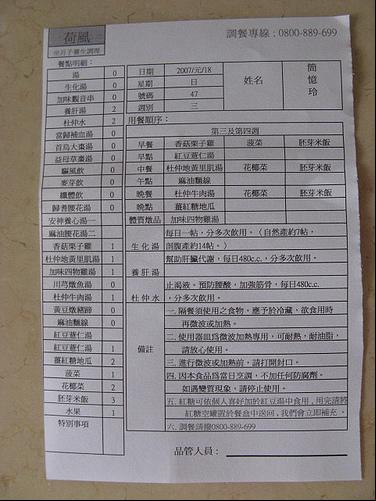 荷風
坐月子養生調理
調餐專線:0800-889-699
餐點明細:
湯 0
生化湯 0
加味觀音串 0
養肝湯 2
杜仲水 2
當歸補血湯 0
首烏大棗湯 0
益母草棗湯 0
驅風飲 0
麥芽飲 0
纖體飲 0
歸耆腰花湯 0
安神養心湯一
麻油腰花湯二
香菇栗子雞 1
杜仲地黃里肌湯 1
加味四物雞湯 1
川芎燉魚湯 0
杜仲牛肉湯 1
黃豆燉豬腳 0
麻油麵線 0
紅豆薏仁湯
紅豆薏仁湯 1
薑紅糖地瓜 2
菠菜 1
花椰菜 2
胚芽米飯 3
水果 1
特別事項
日期 2007/元/18
星期 日
號碼 47
週別 三
姓名
簡憶玲
用餐順序:
第三及第四週
早餐 香菇栗子雞 菠菜 胚芽米飯
早點 紅豆薏仁湯
中餐 杜仲地黃里肌湯 花椰菜 胚芽米飯
午點 麻油麵線
晚餐 杜仲牛肉湯 花椰菜 胚芽米飯
晚點 薑紅糖地瓜
體質燉品 加味四物雞湯
生化湯
每日一帖,分多次飲用。(自然產約7帖,
剖腹產約14帖。)
養肝湯
幫助肝臟代謝,每日480c.c.,分多次飲用。
杜仲水
止渴液。預防腰酸,加強筋骨,每日480c.c.
,分多次飲用。
備註
一. 隔餐須使用之食物,應予於冷藏、欲食用時
再微波或加熱。
二. 使用器皿為微波加熱專用,可耐熱,耐油脂,
請放心使用。
三. 進行微波或加熱前,請打開封口。
四. 因本食品為當日烹調,不加任何防腐劑。
如遇變質現象,請停止使用。
五. 紅糖可依個人喜好加於紅豆湯中食用,用完請將
紅糖空罐置於餐盒中送回,我們會立即補充。
六. 調餐請撥0800-889-699
品管人員: